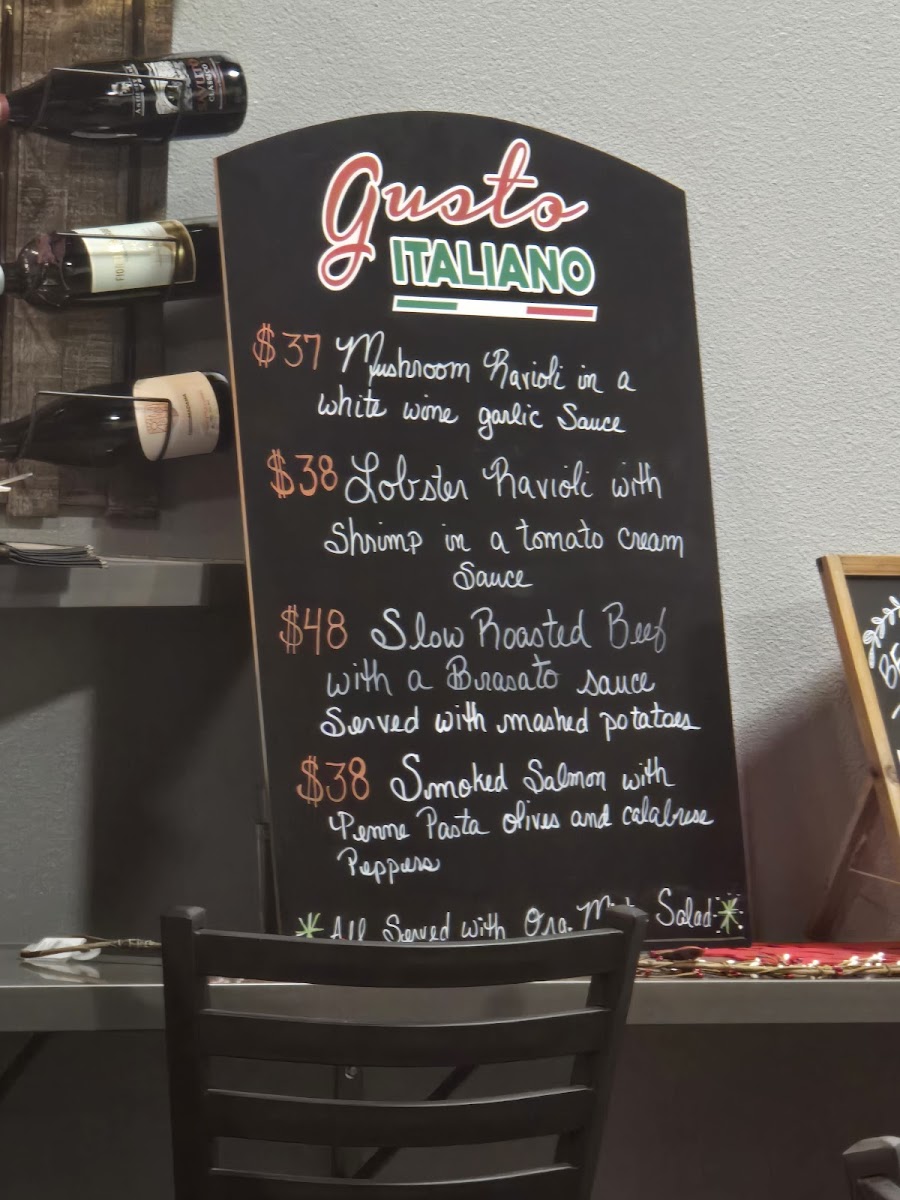 gusto
ITALIANO
$37 Mushroom Ravioli in a
white wine garlic Sauce
$38 Lobster Ravioli with
Shrimp in a tomato cream
Sauce
$48 Slow Roasted Beef
with a Brasato sauce
Served with mashed potatoes
$38 Smoked Salmon with
Penne Pasta olives and calabrese
Peppers
All Served with Org. Salad